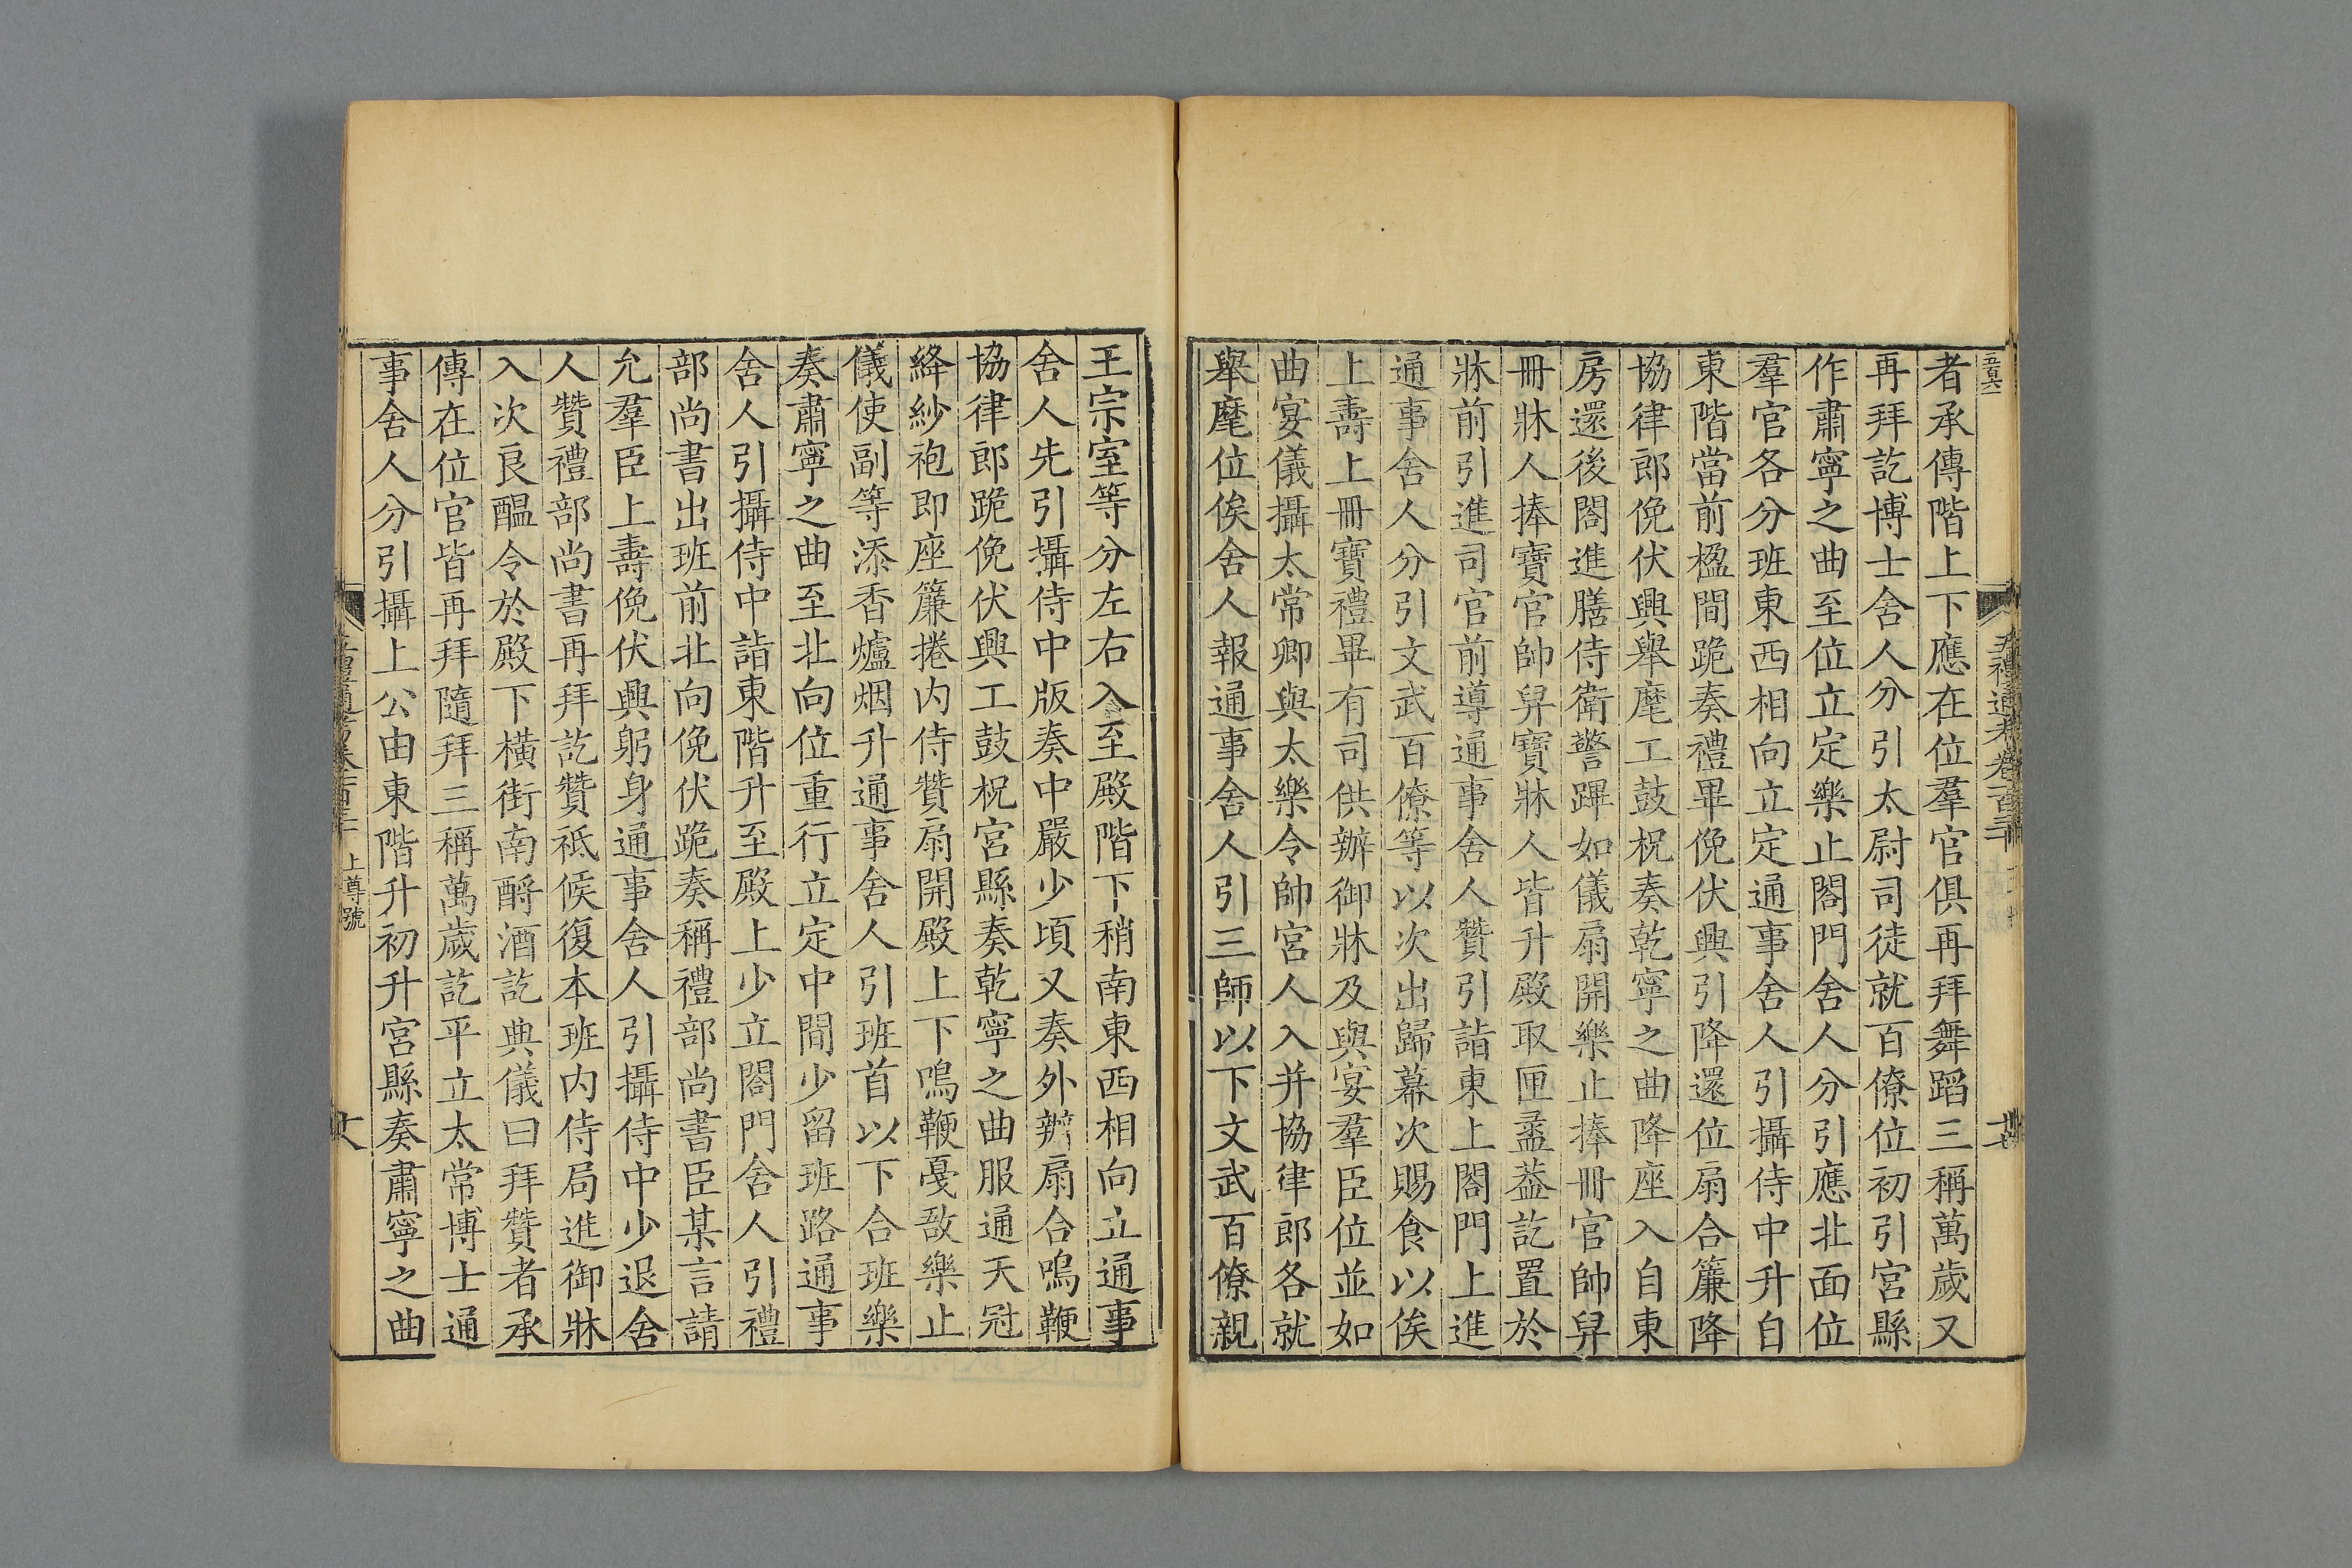 者承傳階上下應在位羣官俱再拜舞蹈三稱萬歲又
再拜訖博士舍人分引太尉司徒就百僚位初引宮縣
作肅寧之曲至位立定樂止閤門舍人分引應北面位
羣官各分班東西相向立定通事舍人引攝侍中升自
東階當前楹間跪奏禮畢俛伏興引降還位扇合簾降
協律郎俛伏興舉麾工鼓柷奏乾寧之曲降座入自東
房還後閤進膳侍衛警蹕如儀扇開樂止捧冊官帥舁
冊牀人捧寶官帥舁寶牀人皆升殿取匣盝葢訖置於
牀前引進司官前導通事舍人贊引詣東上閤門上進
通事舍人分引文武百僚等以次出歸幕次賜食以俟
上壽上冊寶禮畢有司供辦御牀及與宴羣臣位並如
曲宴儀攝太常卿與太樂令帥宮人入并協律郎各就
舉麾位俟舍人報通事舍人引三師以下文武百僚親
王宗室等分左右入至殿階下稍南東西相向立通事
舍人先引攝侍中版奏中嚴少頃又奏外辦扇合鳴鞭
協律郎跪俛伏興工鼓柷宮縣奏乾寧之曲服通天冠
絳紗袍即座簾捲内侍贊扇開殿上下鳴鞭戞敔樂止
儀使副等添香爐烟升通事舍人引班首以下合班樂
奏肅寧之曲至北向位重行立定中間少留班路通事
舍人引攝侍中詣東階升至殿上少立閤門舍人引禮
部尚書出班前北向俛伏跪奏稱禮部尚書臣某言請
允羣臣上壽俛伏興躬身通事舍人引攝侍中少退舍
人贊禮部尚書再拜訖贊祗候復本班内侍局進御牀
入次良醞令於殿下橫街南酹酒訖典儀曰拜贊者承
傳在位官皆再拜隨拜三稱萬歲訖平立太常博士通
事舍人分引攝上公由東階升初升宮縣奏肅寧之曲
上尊號